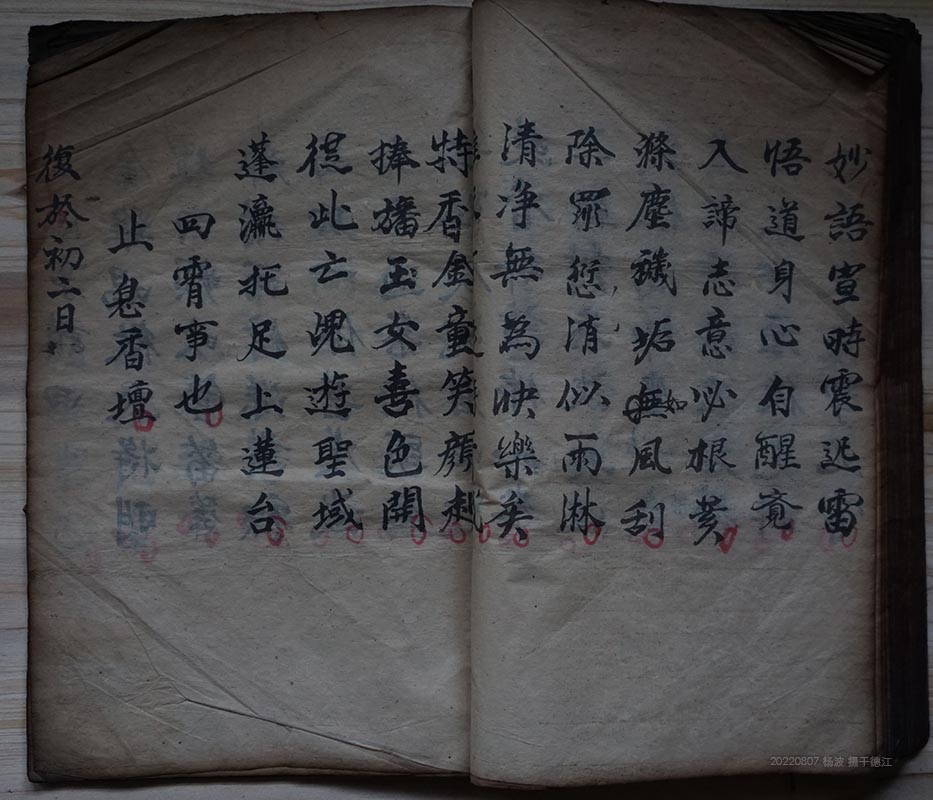 妙語宣時震迅雷
悟道身心自醒竟
入諦志意必根荄
滌塵穢垢如風刮
除罪愆消似雨淋
清净無為快樂矣
特香金童笑顔赴
捧旛玉女喜色開
從此亡魂遊聖域
蓬瀛托足上蓮台
四宵事也
止息香壇
復於初二日
20220807 杨波 摄于德江